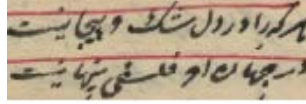 هر که را در دل شک و پیچانیست
در جهان او فلسفی پنهانیست